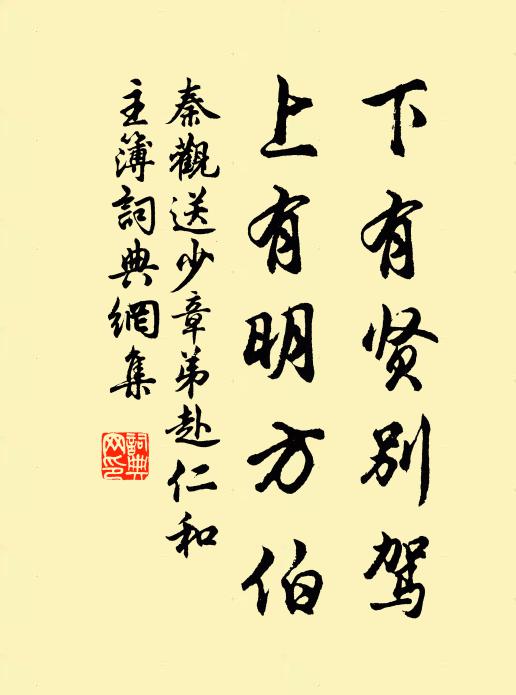 下有贤别驾
上有明方伯
秦觀送少章弟赴仁和
主簿詞典網集
詞典网印